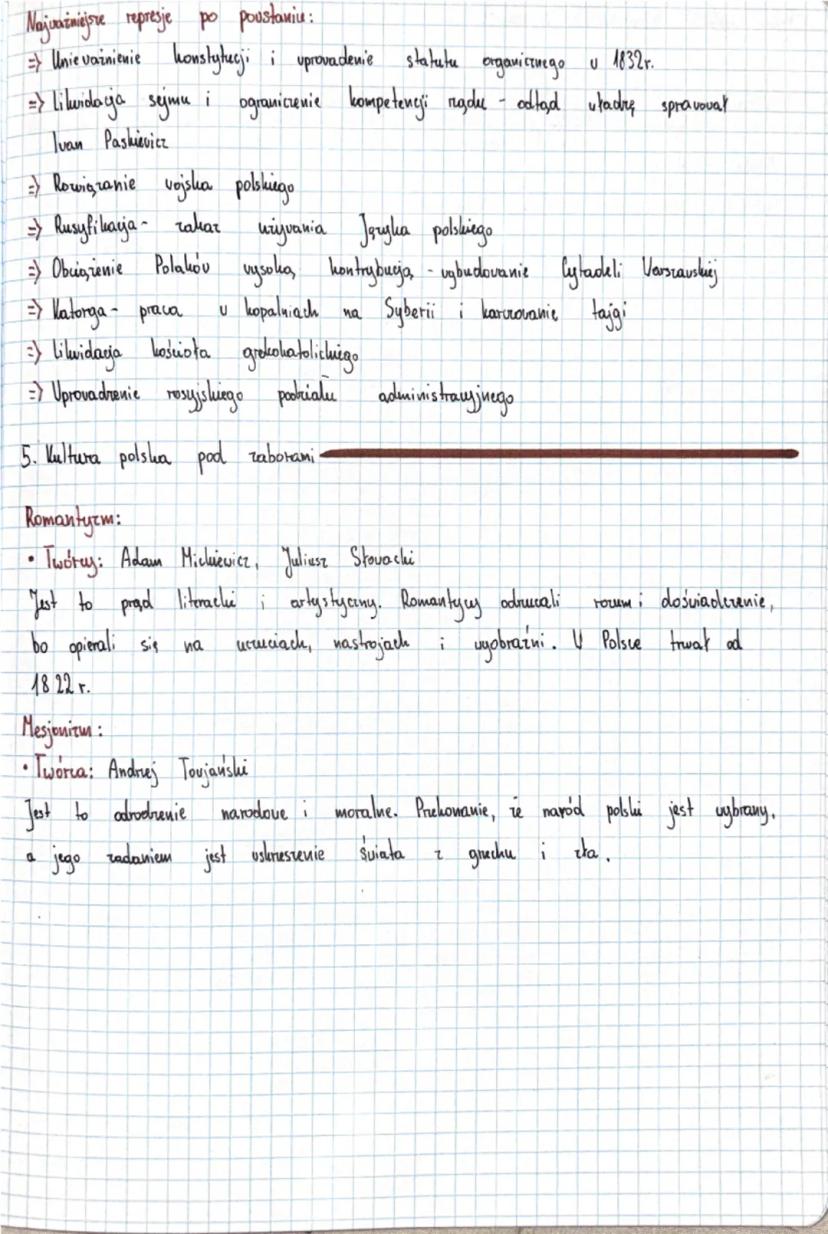 Najważniejsze represje po powstaniu:
=> Unieważnienie konstytucji i wprowadenie statutu organicznego w 1832r.
=> Likwidacja sejmu i ograniczenie kompetencji rządu - odtąd władzę sprawował
Iwan Paskiewicz
=> Rozwiązanie wojska polskiego
=> Rusyfikacja - zakaz używania Języka polskiego
=> Obciążenie Polaków wysoką kontrybucją - wybudowanie Cytadeli Warszawskiej
=> Katorga - praca w kopalniach na Syberii i karczowanie tajgi
=> Likwidacja kościoła grekokatolickiego
=> Wprowadzenie rosyjskiego podziału administracyjnego
5. Kultura polska pod zaborami
Romantyzm:
• Twórcy: Adam Mickiewicz, Juliusz Słowacki
Jest to prąd literacki i artystyczny. Romantycy odrzucali rozum i doświadczenie,
bo opierali się na uczuciach, nastrojach i wyobraźni. W Polsce trwał od
1822 r.
Mesjanizm:
• Twórca: Andrzej Towjański
Jest to odrodzenie narodowe i moralne. Przekonanie, że naród polski jest wybrany,
a jego zadaniem jest wskrzeszenie świata z grzechu i zła.